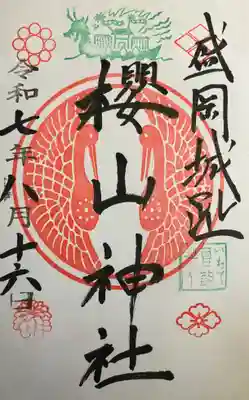 盛岡城趾
櫻山神社
令和七年八月十六日